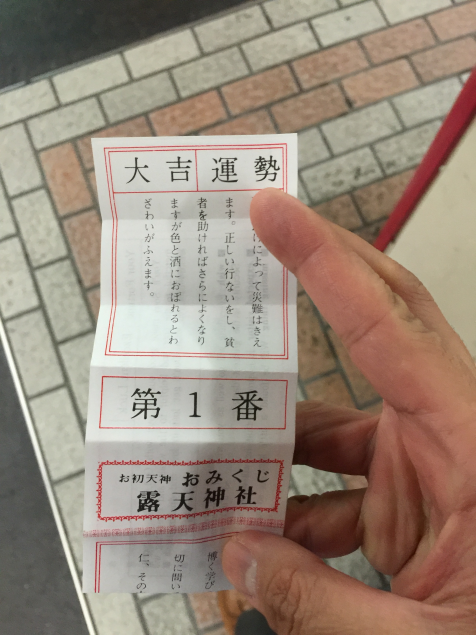 大吉
運勢
けによって災難はきえ
ます。正しい行ないをし、貧
者を助ければさらによくなり
ますが色と酒におぼれるとわ
ざわいがふえます。
第1番
お初天神 おみくじ
露天神社
博く学び
切に問い
仁、その